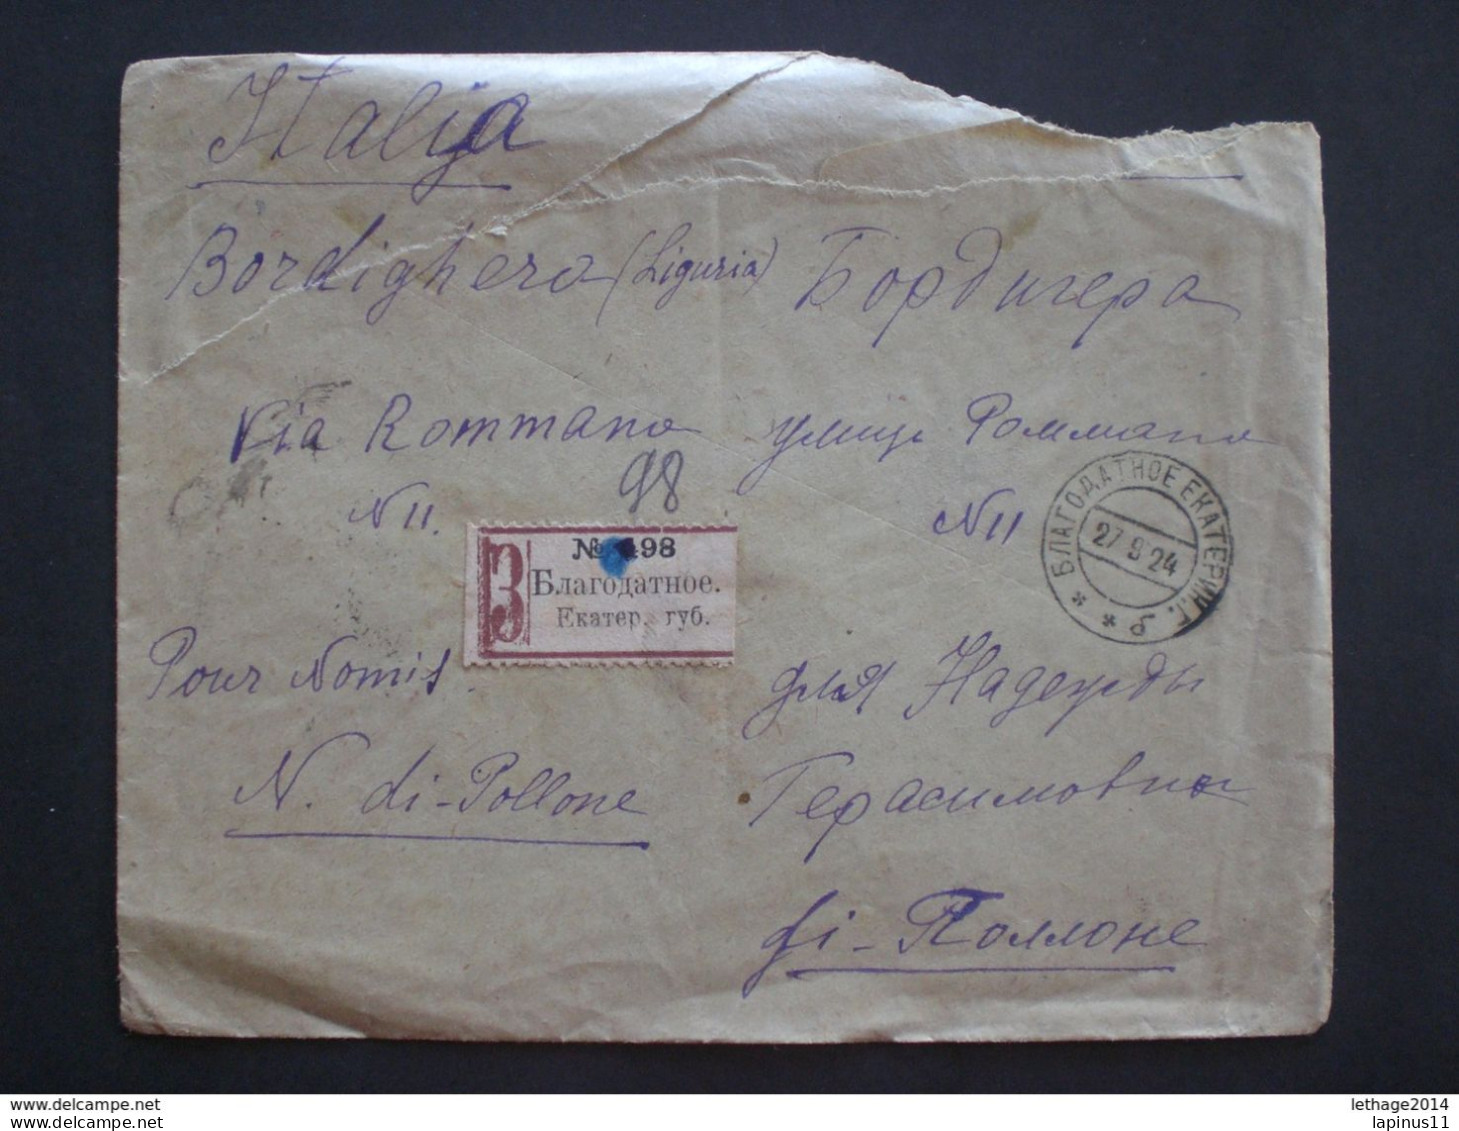 Italija
Bordighera (Liguria) Бордигера
Via Rommano улица Роммано
98
N 11. N 11
БЛАГОДАТНОЕ ЕКАТЕРИН.Г.
27 9 24
* б *
№ 498
З Благодатное.
Екатер. губ.
Pour Nomis. для Надежды
N. di-Pollone Герасимовны
di-Поллоне
delcampe.net
lethage2014
delcampe.net
lapinus11